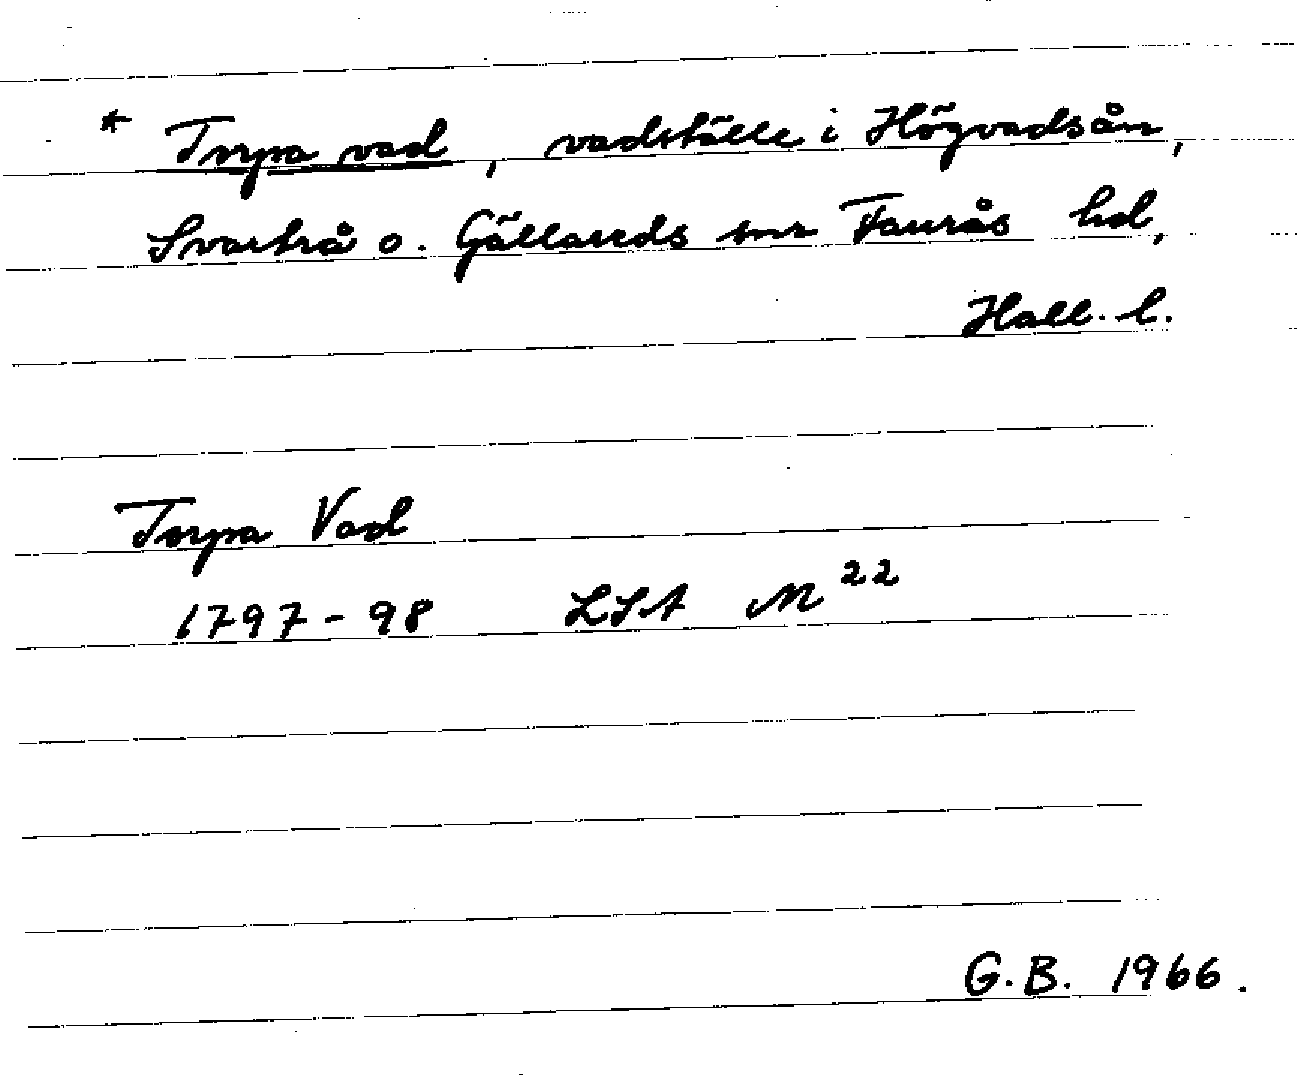 * Torpa vad, vadställe i Högvadsån,
Svartrå o. Gällareds snr Faurås hd,
Hall. l.
Torpa Vad
1797-98 LSA M²²
G.B. 1966.